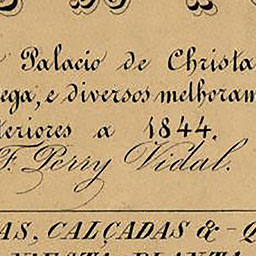 Palacio de Christa
ega, e diversos melhoram
teriores a 1844.
F. Perry Vidal.
AS, CALÇADAS & - Q